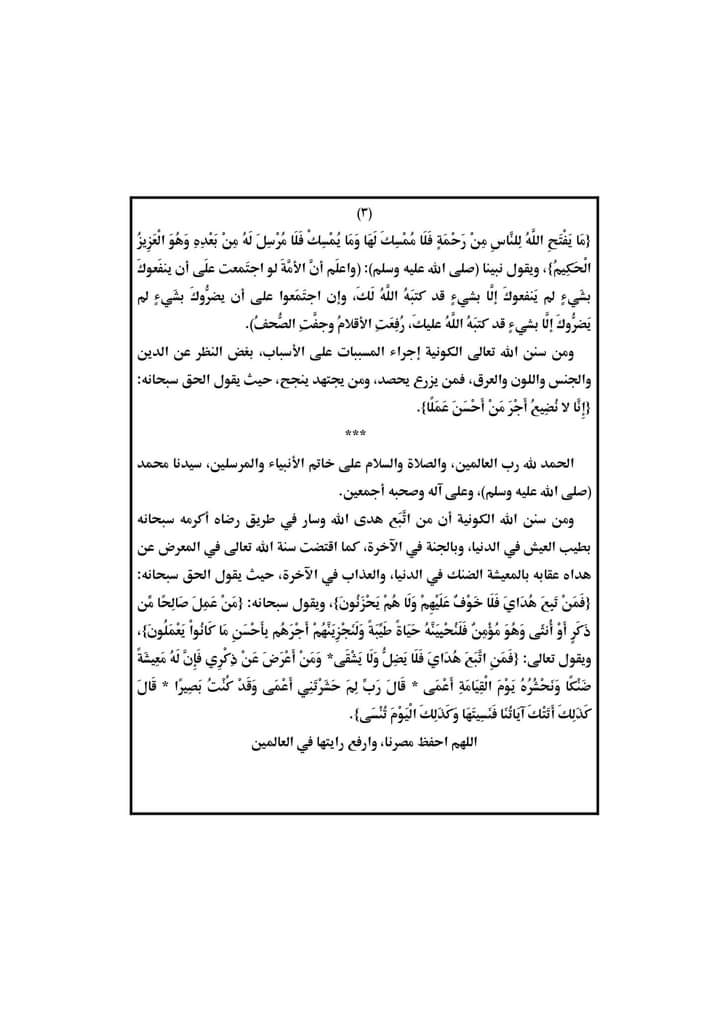 (٣)
{مَا يَفْتَحِ اللَّهُ لِلنَّاسِ مِنْ رَحْمَةٍ فَلَا مُمْسِكَ لَهَا وَمَا يُمْسِكْ فَلَا مُرْسِلَ لَهُ مِنْ بَعْدِهِ وَهُوَ الْعَزِيزُ
الْحَكِيمُ}، ويقول نبينا (صلى الله عليه وسلم): (واعلَم أنَّ الأمَّةَ لو اجتَمعت علَى أن ينفَعوكَ
بشَيءٍ لم يَنفعوكَ إلَّا بشيءٍ قد كتبَهُ اللَّهُ لَكَ، وإن اجتَمَعوا على أن يضرُّوكَ بشَيءٍ لم
يَضرُّوكَ إلَّا بشيءٍ قد كتبَهُ اللَّهُ عليكَ، رُفِعَتِ الأقلامُ وجفَّتِ الصُّحفُ).
ومن سنن الله تعالى الكونية إجراء المسببات على الأسباب، بغض النظر عن الدين
والجنس واللون والعرق، فمن يزرع يحصد، ومن يجتهد ينجح، حيث يقول الحق سبحانه:
{إِنَّا لا نُضِيعُ أَجْرَ مَنْ أَحْسَنَ عَمَلًا}.
***
الحمد لله رب العالمين، والصلاة والسلام على خاتم الأنبياء والمرسلين، سيدنا محمد
(صلى الله عليه وسلم)، وعلى آله وصحبه أجمعين.
ومن سنن الله الكونية أن من اتَّبَع هدى الله وسار في طريق رضاه أكرمه سبحانه
بطيب العيش في الدنيا، وبالجنة في الآخرة، كما اقتضت سنة الله تعالى في المعرض عن
هداه عقابه بالمعيشة الضنك في الدنيا، والعذاب في الآخرة، حيث يقول الحق سبحانه:
{فَمَنْ تَبِعَ هُدَايَ فَلَا خَوْفٌ عَلَيْهِمْ وَلَا هُمْ يَحْزَنُونَ}، ويقول سبحانه: {مَنْ عَمِلَ صَالِحًا مِّن
ذَكَرٍ أَوْ أُنثَى وَهُوَ مُؤْمِنٌ فَلَنُحْيِيَنَّهُ حَيَاةً طَيِّبَةً وَلَنَجْزِيَنَّهُمْ أَجْرَهُم بِأَحْسَنِ مَا كَانُواْ يَعْمَلُونَ}،
ويقول تعالى: {فَمَنِ اتَّبَعَ هُدَايَ فَلَا يَضِلُّ وَلَا يَشْقَى* وَمَنْ أَعْرَضَ عَنْ ذِكْرِي فَإِنَّ لَهُ مَعِيشَةً
ضَنْكًا وَنَحْشُرُهُ يَوْمَ الْقِيَامَةِ أَعْمَى * قَالَ رَبِّ لِمَ حَشَرْتَنِي أَعْمَى وَقَدْ كُنْتُ بَصِيرًا * قَالَ
كَذَلِكَ أَتَتْكَ آيَاتُنَا فَنَسِيتَهَا وَكَذَلِكَ الْيَوْمَ تُنْسَى}.
اللهم احفظ مصرنا، وارفع رايتها في العالمين